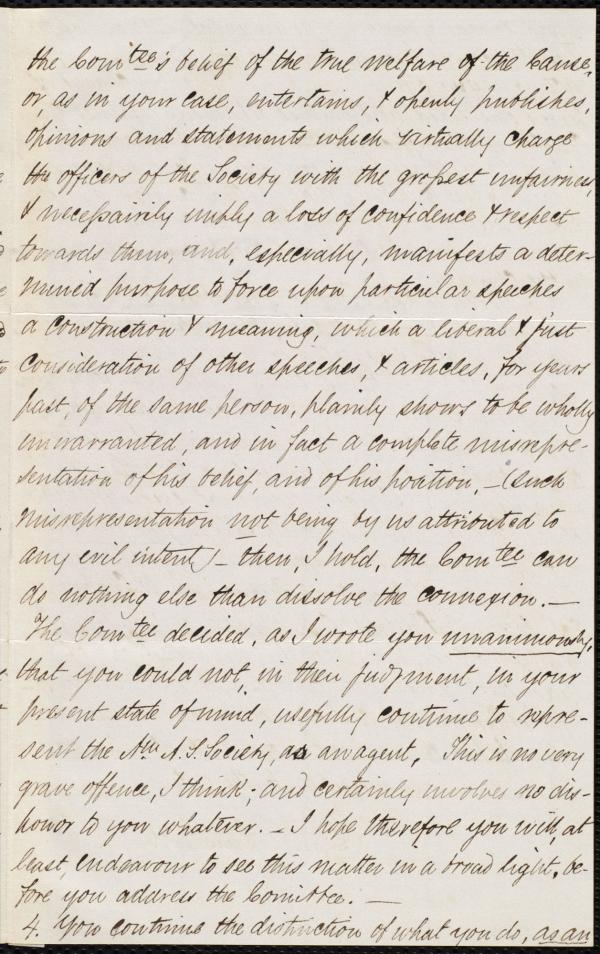 the Com<sup>tee</sup>'s belief of the true welfare of the Cause,
or, as in your case, entertains, & openly publishes,
opinions and statements which virtually charge
the officers of the Society with the grossest unfairness,
& necessairily imply a loss of confidence & respect
towards them, and, especially, manifests a deter-
mined purpose to force upon particular speeches
a construction & meaning, which a liberal & just
consideration of other speeches, & articles, for years
past, of the same person, plainly shows to be wholly
unwarranted, and in fact a complete misrepre-
sentation of his belief, and of his position, – (such
misrepresentation not being by us attributed to
any evil intent) – then, I hold, the Com<sup>tee</sup> can
do nothing else than dissolve the connexion. —
The Com<sup>tee</sup> decided, as I wrote you unanimously,
that you could not, in their judgment, in your
present state of mind, usefully continue to repre-
sent the Am. A. S. Society, as an agent. This is no very
grave offence, I think; and certainly involves no dis-
honor to you whatever. – I hope therefore you will, at
least, endeavour to see this matter in a broad light, be-
fore you address the Comittee. —
4. You continue the distinction of what you do, as an